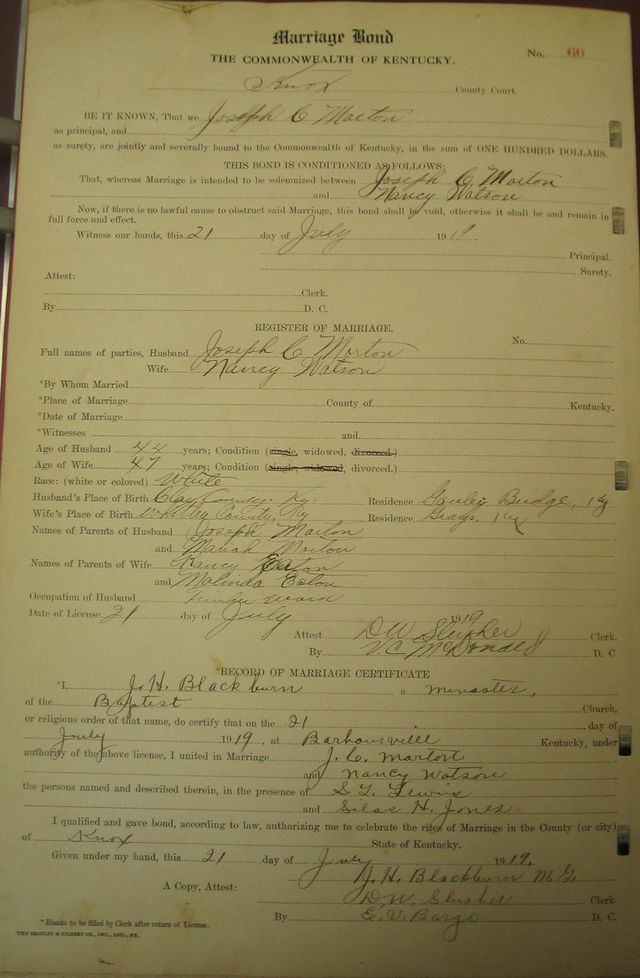 Marriage Bond
THE COMMONWEALTH OF KENTUCKY.
No. 60
Knox County Court.
BE IT KNOWN, That we Joseph C Morton
as principal, and
as surety, are jointly and severally bound to the Commonwealth of Kentucky, in the sum of ONE HUNDRED DOLLARS.
THIS BOND IS CONDITIONED AS FOLLOWS:
That, whereas Marriage is intended to be solemnized between Joseph C. Morton
and Nancy Watson
Now, if there is no lawful cause to obstruct said Marriage, this bond shall be void, otherwise it shall be and remain in
full force and effect.
Witness our hands, this 21 day of July 1919.
Principal.
Surety.
Attest:
Clerk.
By D. C.
REGISTER OF MARRIAGE.
No.
Full names of parties, Husband Joseph C Morton
Wife Nancy Watson
*By Whom Married
*Place of Marriage County of Kentucky.
*Date of Marriage
*Witnesses and
Age of Husband 44 years; Condition (single, widowed, divorced.)
Age of Wife 47 years; Condition (single, widowed, divorced.)
Race: (white or colored) White
Husband's Place of Birth Clay County. Ky. Residence
Wife's Place of Birth Whitley County, Ky Residence Grays, Ky
Names of Parents of Husband Joseph Morton
and Mariah Morton
Names of Parents of Wife Eaton
and Malinda Eaton
Occupation of Husband
Date of License 21 day of July 1919
Attest D W Slusher Clerk.
By V. C. McDonald D. C
*RECORD OF MARRIAGE CERTIFICATE
*I, J. H. Blackburn a minaster,
of the Baptist Church,
or religious order of that name, do certify that on the 21 day of
July 1919, at Barbourville Kentucky, under
authority of the above license, I united in Marriage J. C. Morton
and Nancy Watson
the persons named and described therein, in the presence of S. L. Lewis
and Silas H. Jones
I qualified and gave bond, according to law, authorizing me to celebrate the rites of Marriage in the County (or city)
of Knox State of Kentucky.
Given under my hand, this 21 day of July 1919.
J. H. Blackburn M. G.
A Copy, Attest: D. W. Slusher Clerk
By E. V. Bargo D. C.
* Blanks to be filled by Clerk after return of License.
THE BRADLEY & GILBERT CO., INC., LOU., KY.